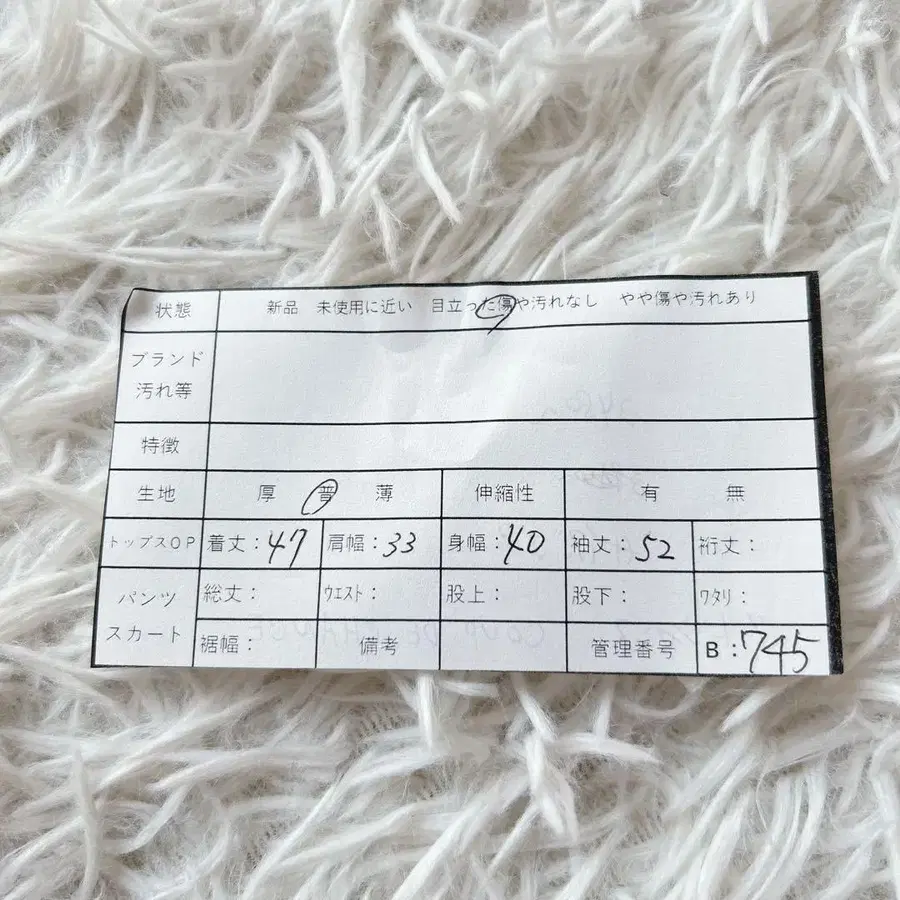 状態 新品 未使用に近い 目立った傷や汚れなし やや傷や汚れあり
ブランド
汚れ等
特徴
生地 厚 普 薄 伸縮性 有 無
トップスOP 着丈：47 肩幅：33 身幅：40 袖丈：52 裄丈：
パンツ
スカート
総丈： ウエスト： 股上： 股下： ワタリ：
裾幅： 備考 管理番号 B：745